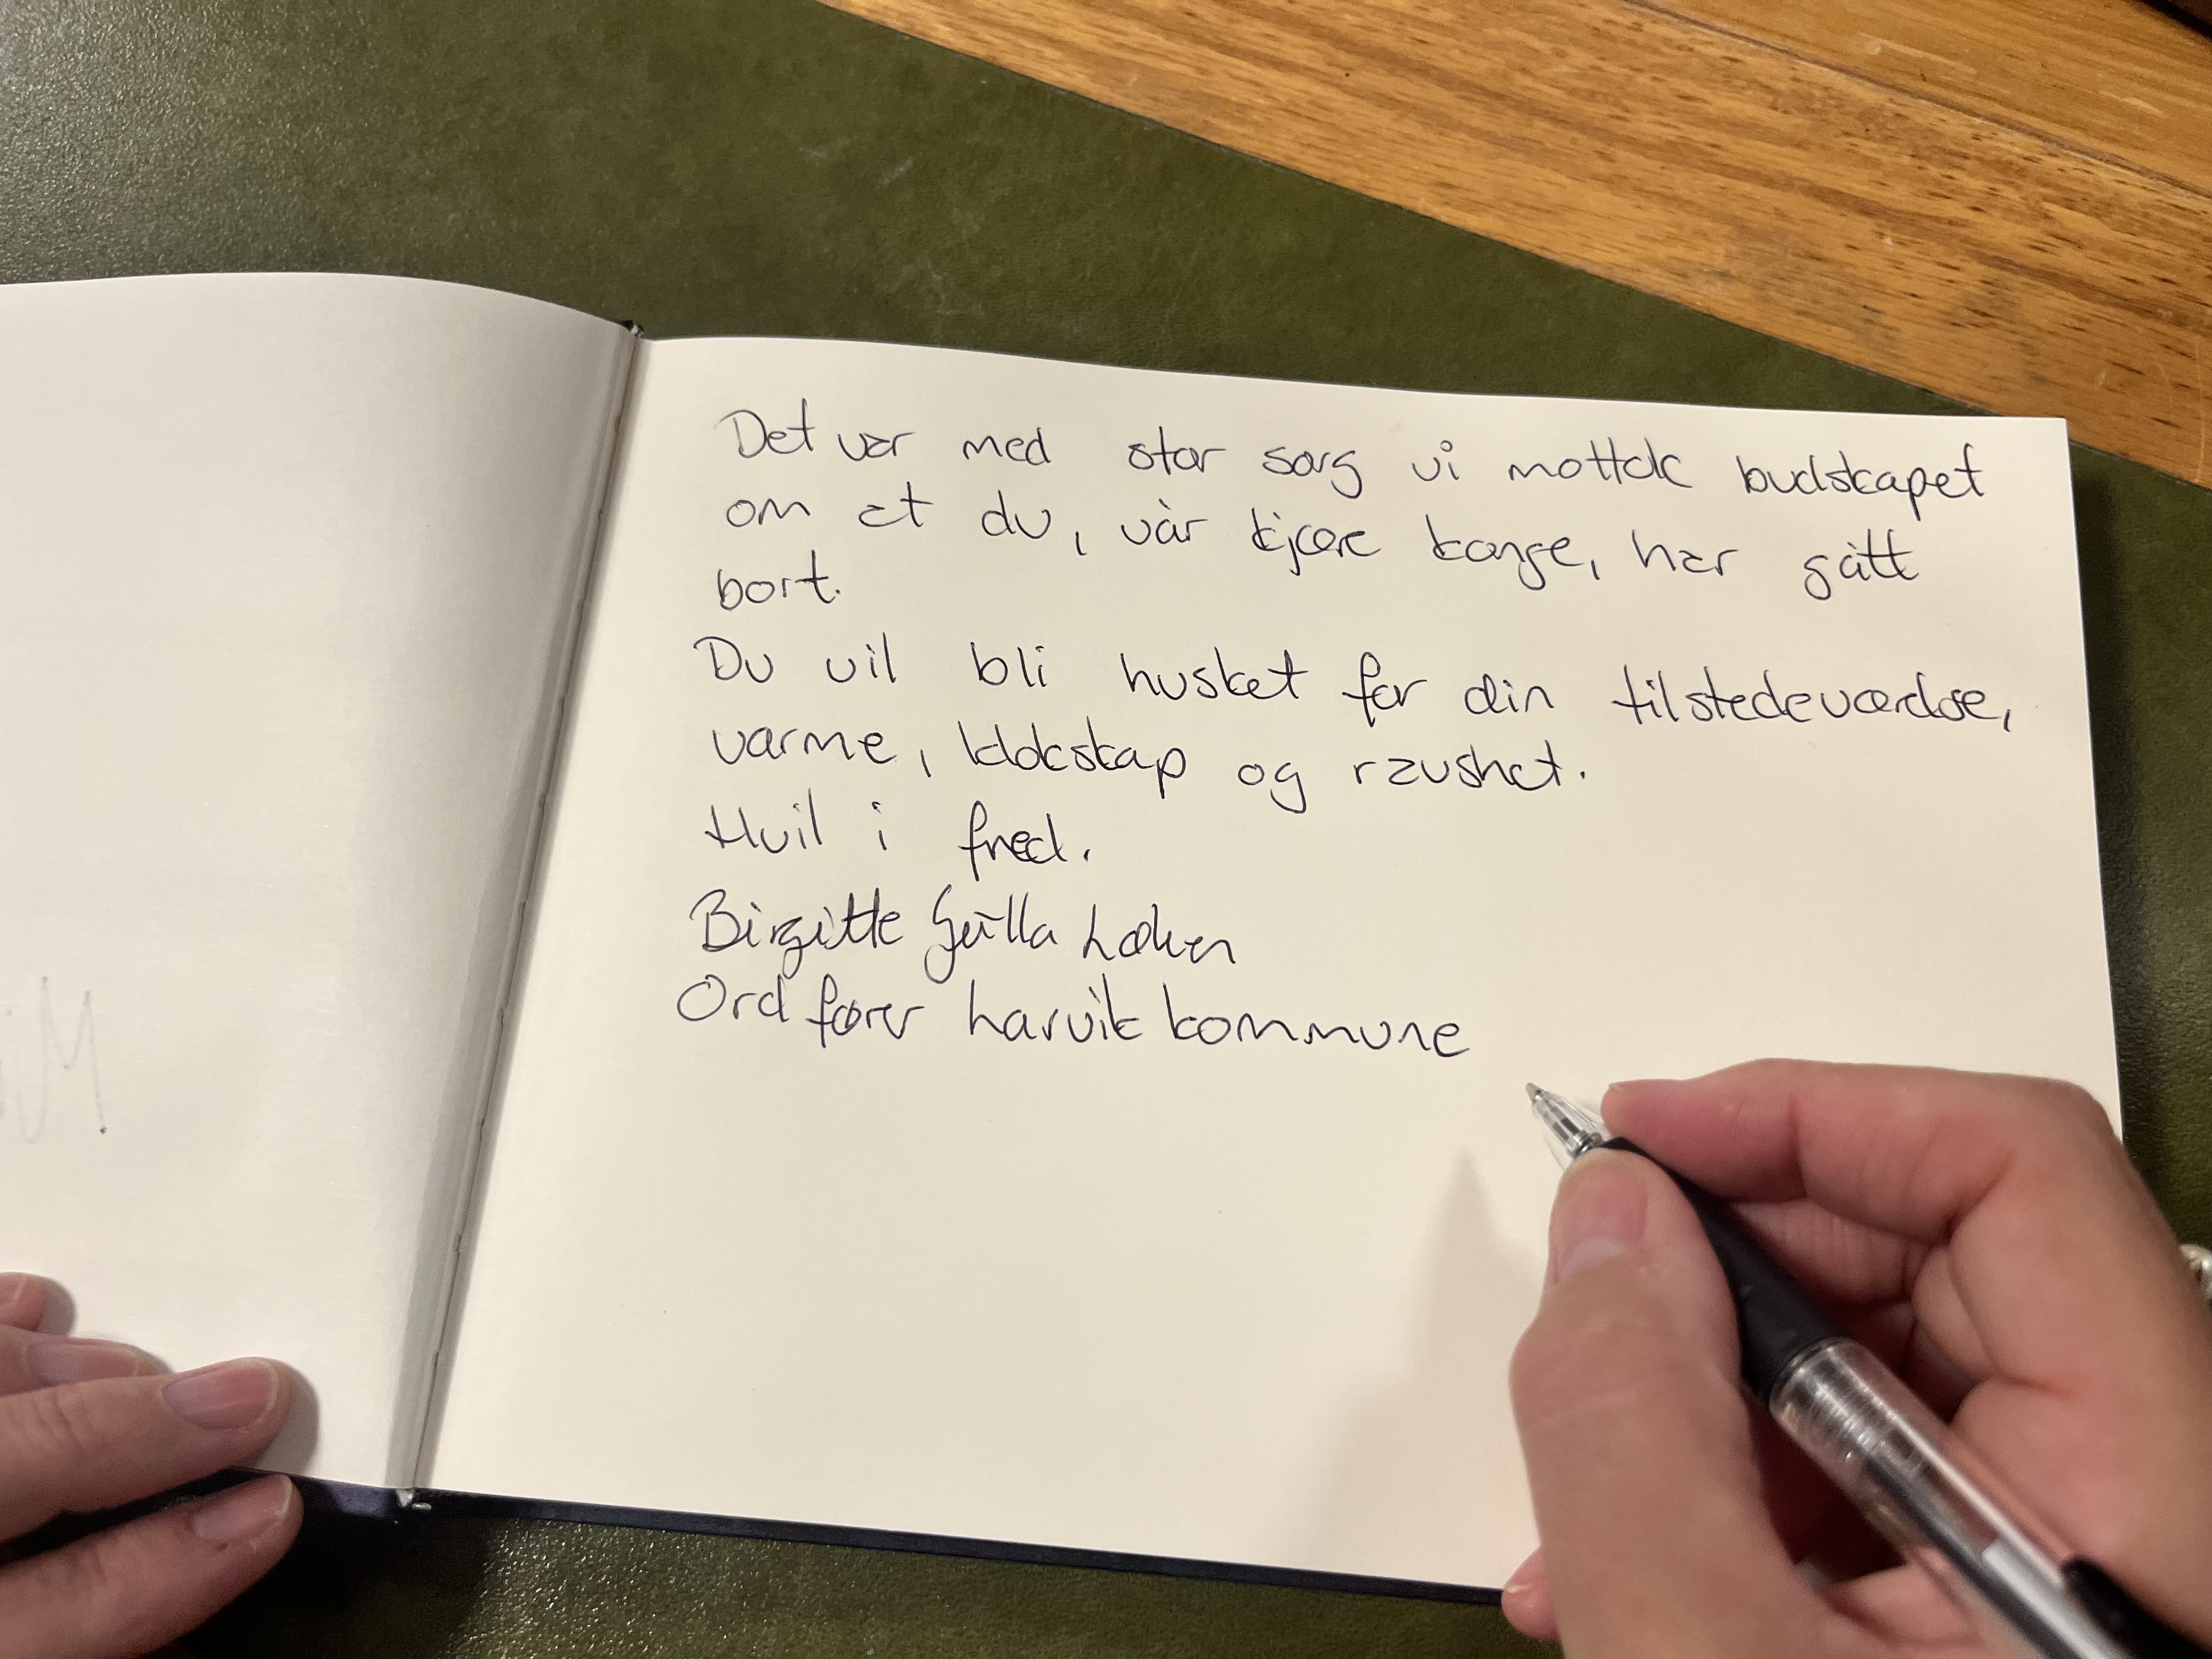 Det var med stor sorg vi mottok budskapet
om at du, vår kjære konge, har gått
bort.
Du vil bli husket for din tilstedeværelse,
varme, klokskap og raushet.
Hvil i fred.
Birgitte Gulla Løken
Ordfører Larvik kommune